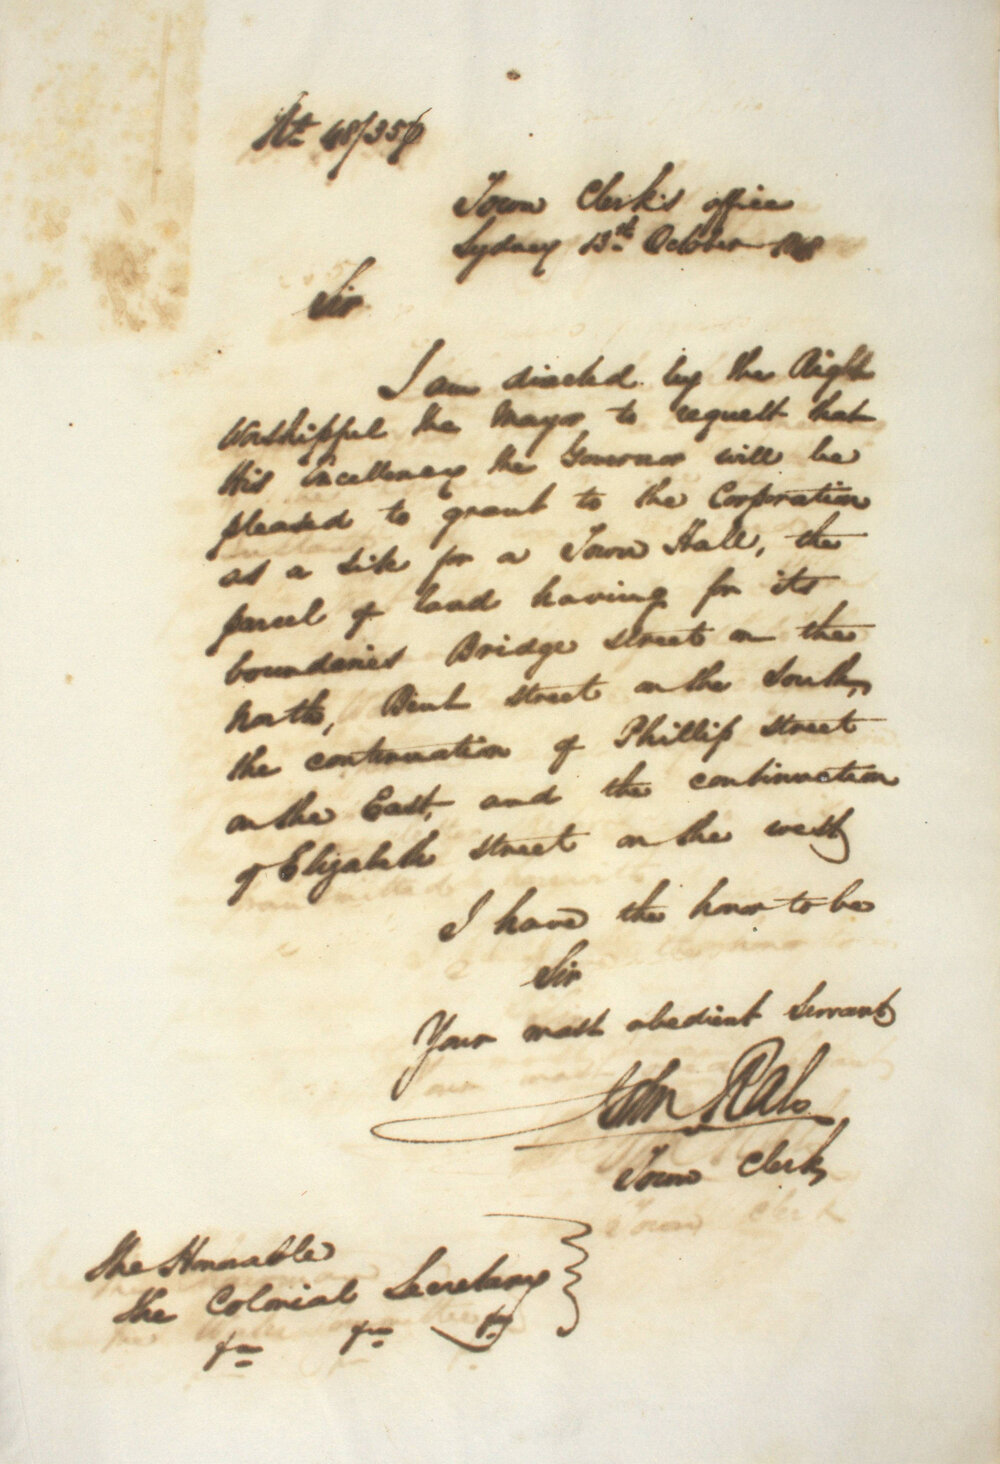 No. 48/356
Town Clerk's office
Sydney 13th October 1848
Sir
I am directed by the Right
Worshipful the Mayor to request that
His Excellency the Governor will be
pleased to grant to the Corporation
as a site for a Town Hall, the
parcel of land having for its
boundaries Bridge street on the
North, Bent street on the South,
the continuation of Phillip street
on the East, and the continuation
of Elizabeth street on the west
I have the honor to be
Sir
Your most obedient Servant
John Rae
Town Clerk
The Honorable
The Colonial Secretary